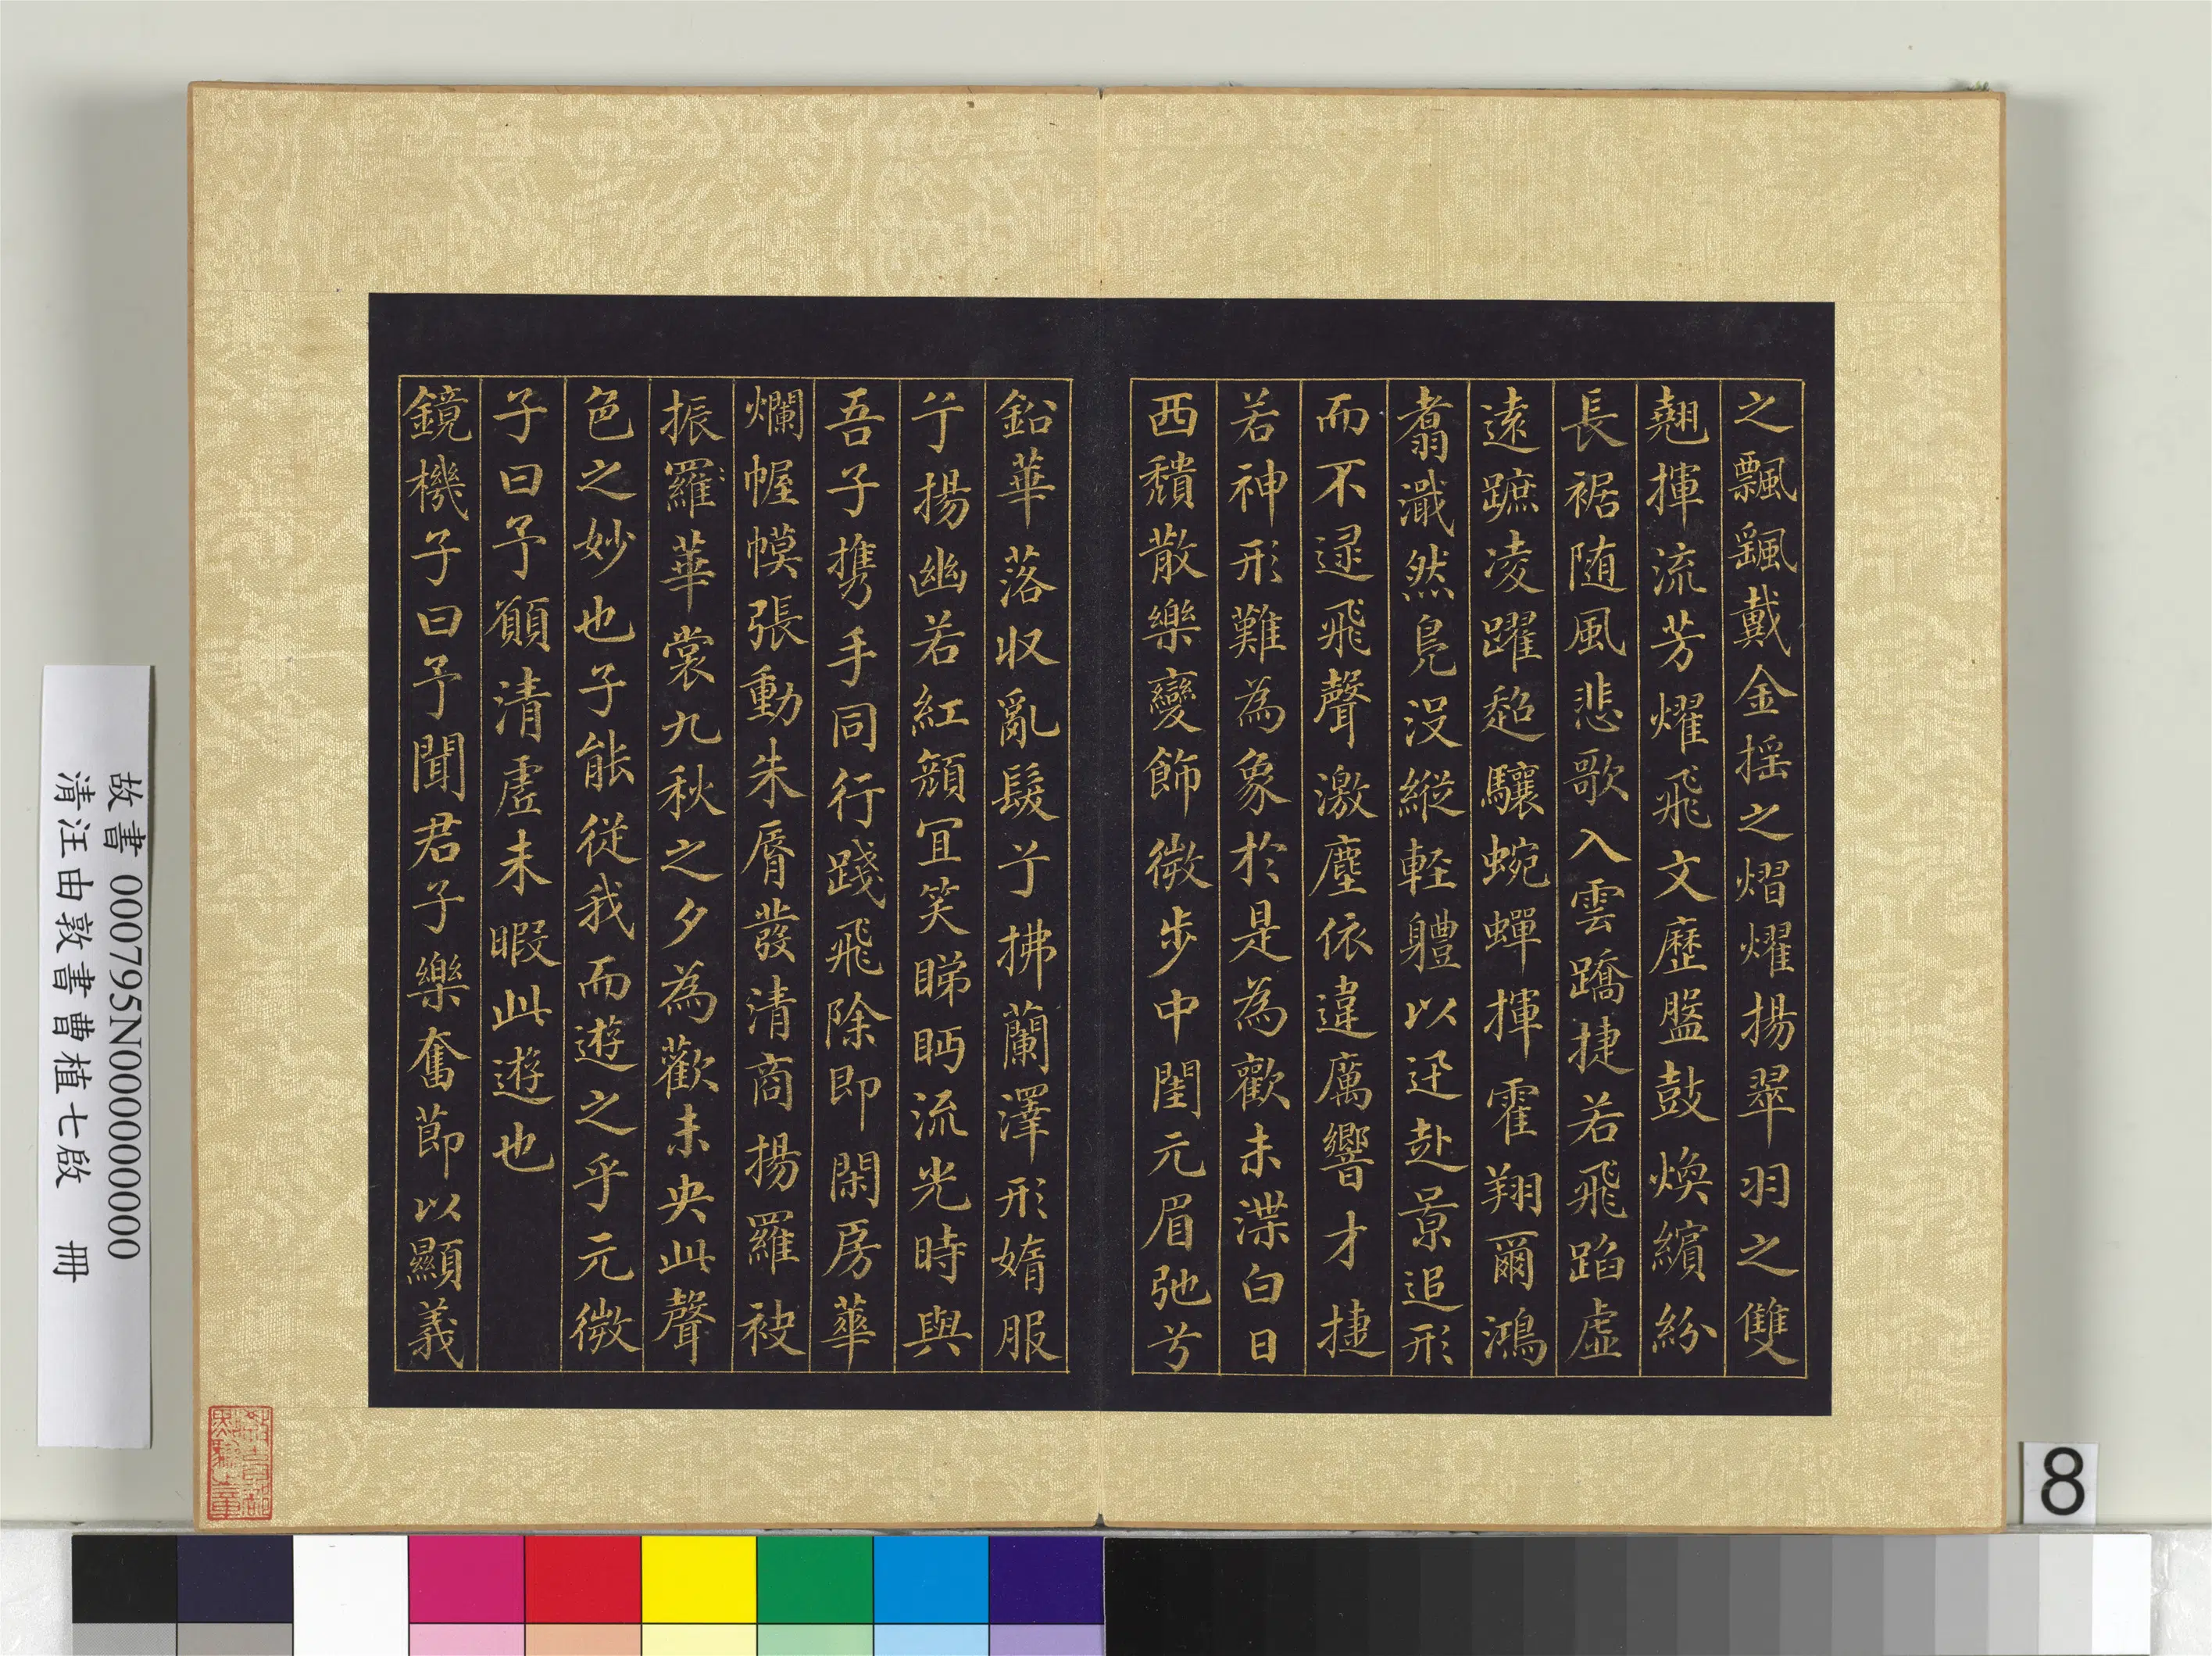 之飄颻戴金搖之熠燿揚翠羽之雙
翹揮流芳燿飛文歷盤鼓煥繽紛
長裾随風悲歌入雲蹻捷若飛蹈虛
遠蹠凌躍超驤蜿蟬揮霍翔爾鴻
翥濈然鳧沒縱輕體以迅赴景追形
而不逮飛聲激塵依違厲響才捷
若神形難為象於是為歡未渫白日
西頹散樂變飾微步中閨元眉弛兮
鉛華落収亂髮兮拂蘭澤形媠服
兮揚幽若紅顏宜笑睇眄流光時與
吾子攜手同行踐飛除即閑房華
爛幄幙張動朱脣發清商揚羅袂
振羅華裳九秋之夕為歡未央此聲
色之妙也子能從我而遊之乎元微
子曰予願清虛未暇此遊也
鏡機子曰予聞君子樂奮節以顯義
故書 000795N000000000
清汪由敦書曹植七啟 冊
8